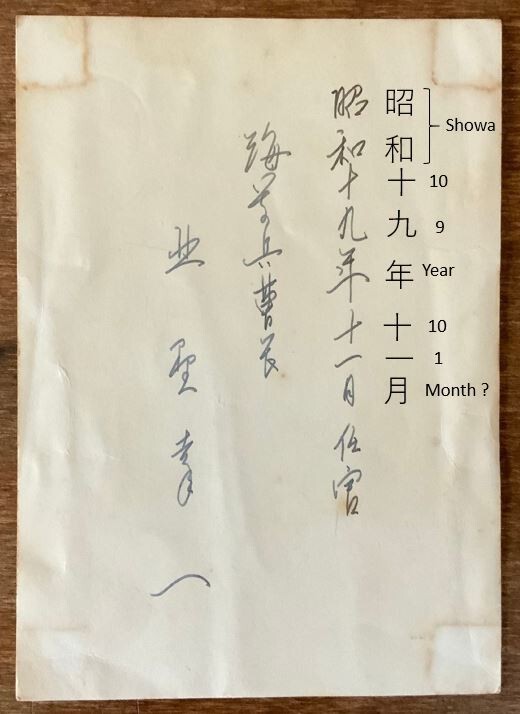 昭和十九年十一月
Showa
10
9
Year
10
1
Month ?
昭和十九年十一月任官
海軍兵曹長
幸一